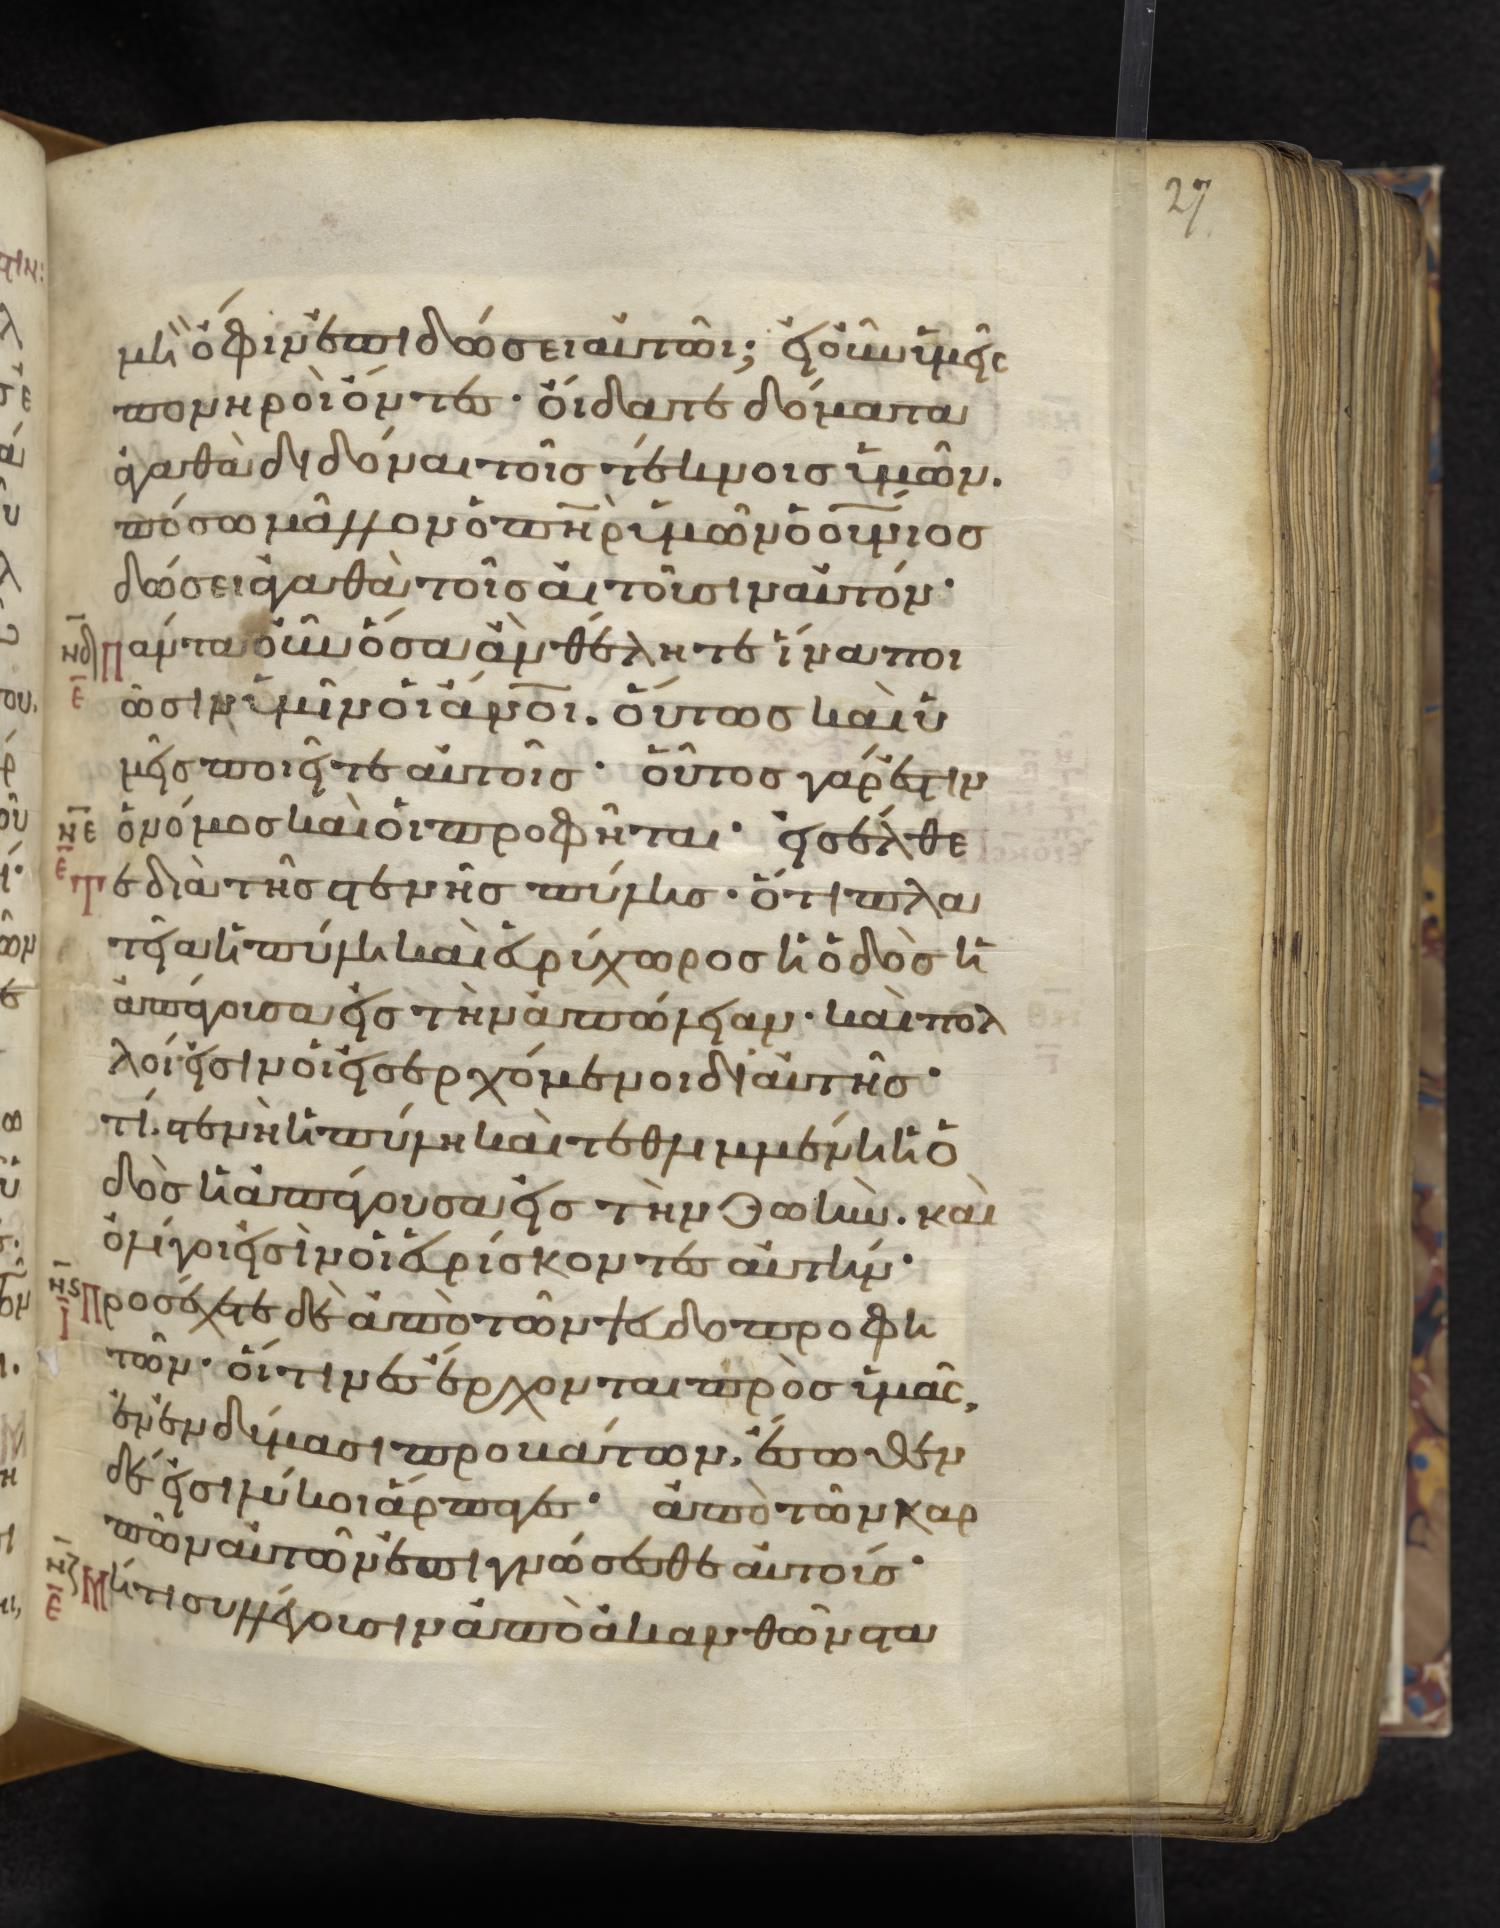 27
μὴ ὄφιν ἐπιδώσει αὐτῶι; εἰ οὖν ὑμεῖς
πονηροὶ ὄντες· οἴδατε δόματα
ἀγαθὰ διδόναι τοῖς τέκνοις ὑμῶν.
πόσω μᾶλλον ὁ πηρ ὑμῶν ὁ οὐνιος
δώσει ἀγαθὰ τοῖς αἰτοῦσιν αὐτόν·
νδ Πάντα οὖν ὅσα ἂν θέλητε ἵνα ποι
ε ῶσιν ὑμῖν οἱ ἄνοι. οὕτως καὶ ὑ
μεῖς ποιεῖτε αὐτοῖς· οὗτος γάρ ἐστιν
νε ὁ νόμος καὶ οἱ προφῆται· εἰσέλθε
ε Τε διὰ τῆς στενῆς πύλης· ὅτι πλα
τεῖα ἡ πύλη καὶ εὐρύχωρος ἡ ὁδὸς ἡ
ἀπάγουσα εἰς τὴν ἀπώλειαν· καὶ πολ
λοί εἰσιν οἱ εἰσερχόμενοι δι αὐτῆς·
τί στενὴ ἡ πύλη καὶ τεθλιμμένη ἡ ὁ
δὸς ἡ ἀπάγουσα εἰς τὴν ζωὴν. καὶ
ὀλίγοι εἰσὶν οἱ εὑρίσκοντες αὐτήν·
νς Προσέχετε δὲ ἀπὸ τῶν ψευδοπροφη
ι τῶν· οἵτινες ἔρχονται πρὸς ὑμᾶς,
ἐν ἐνδύμασι προβάτων, ἔσωθεν
δέ εἰσι λύκοι ἅρπαγες· ἀπὸ τῶν καρ
πῶν αὐτῶν ἐπιγνώσεσθε αὐτούς·
νζ Μήτι συλλέγουσιν ἀπὸ ἀκανθῶν στα
ε